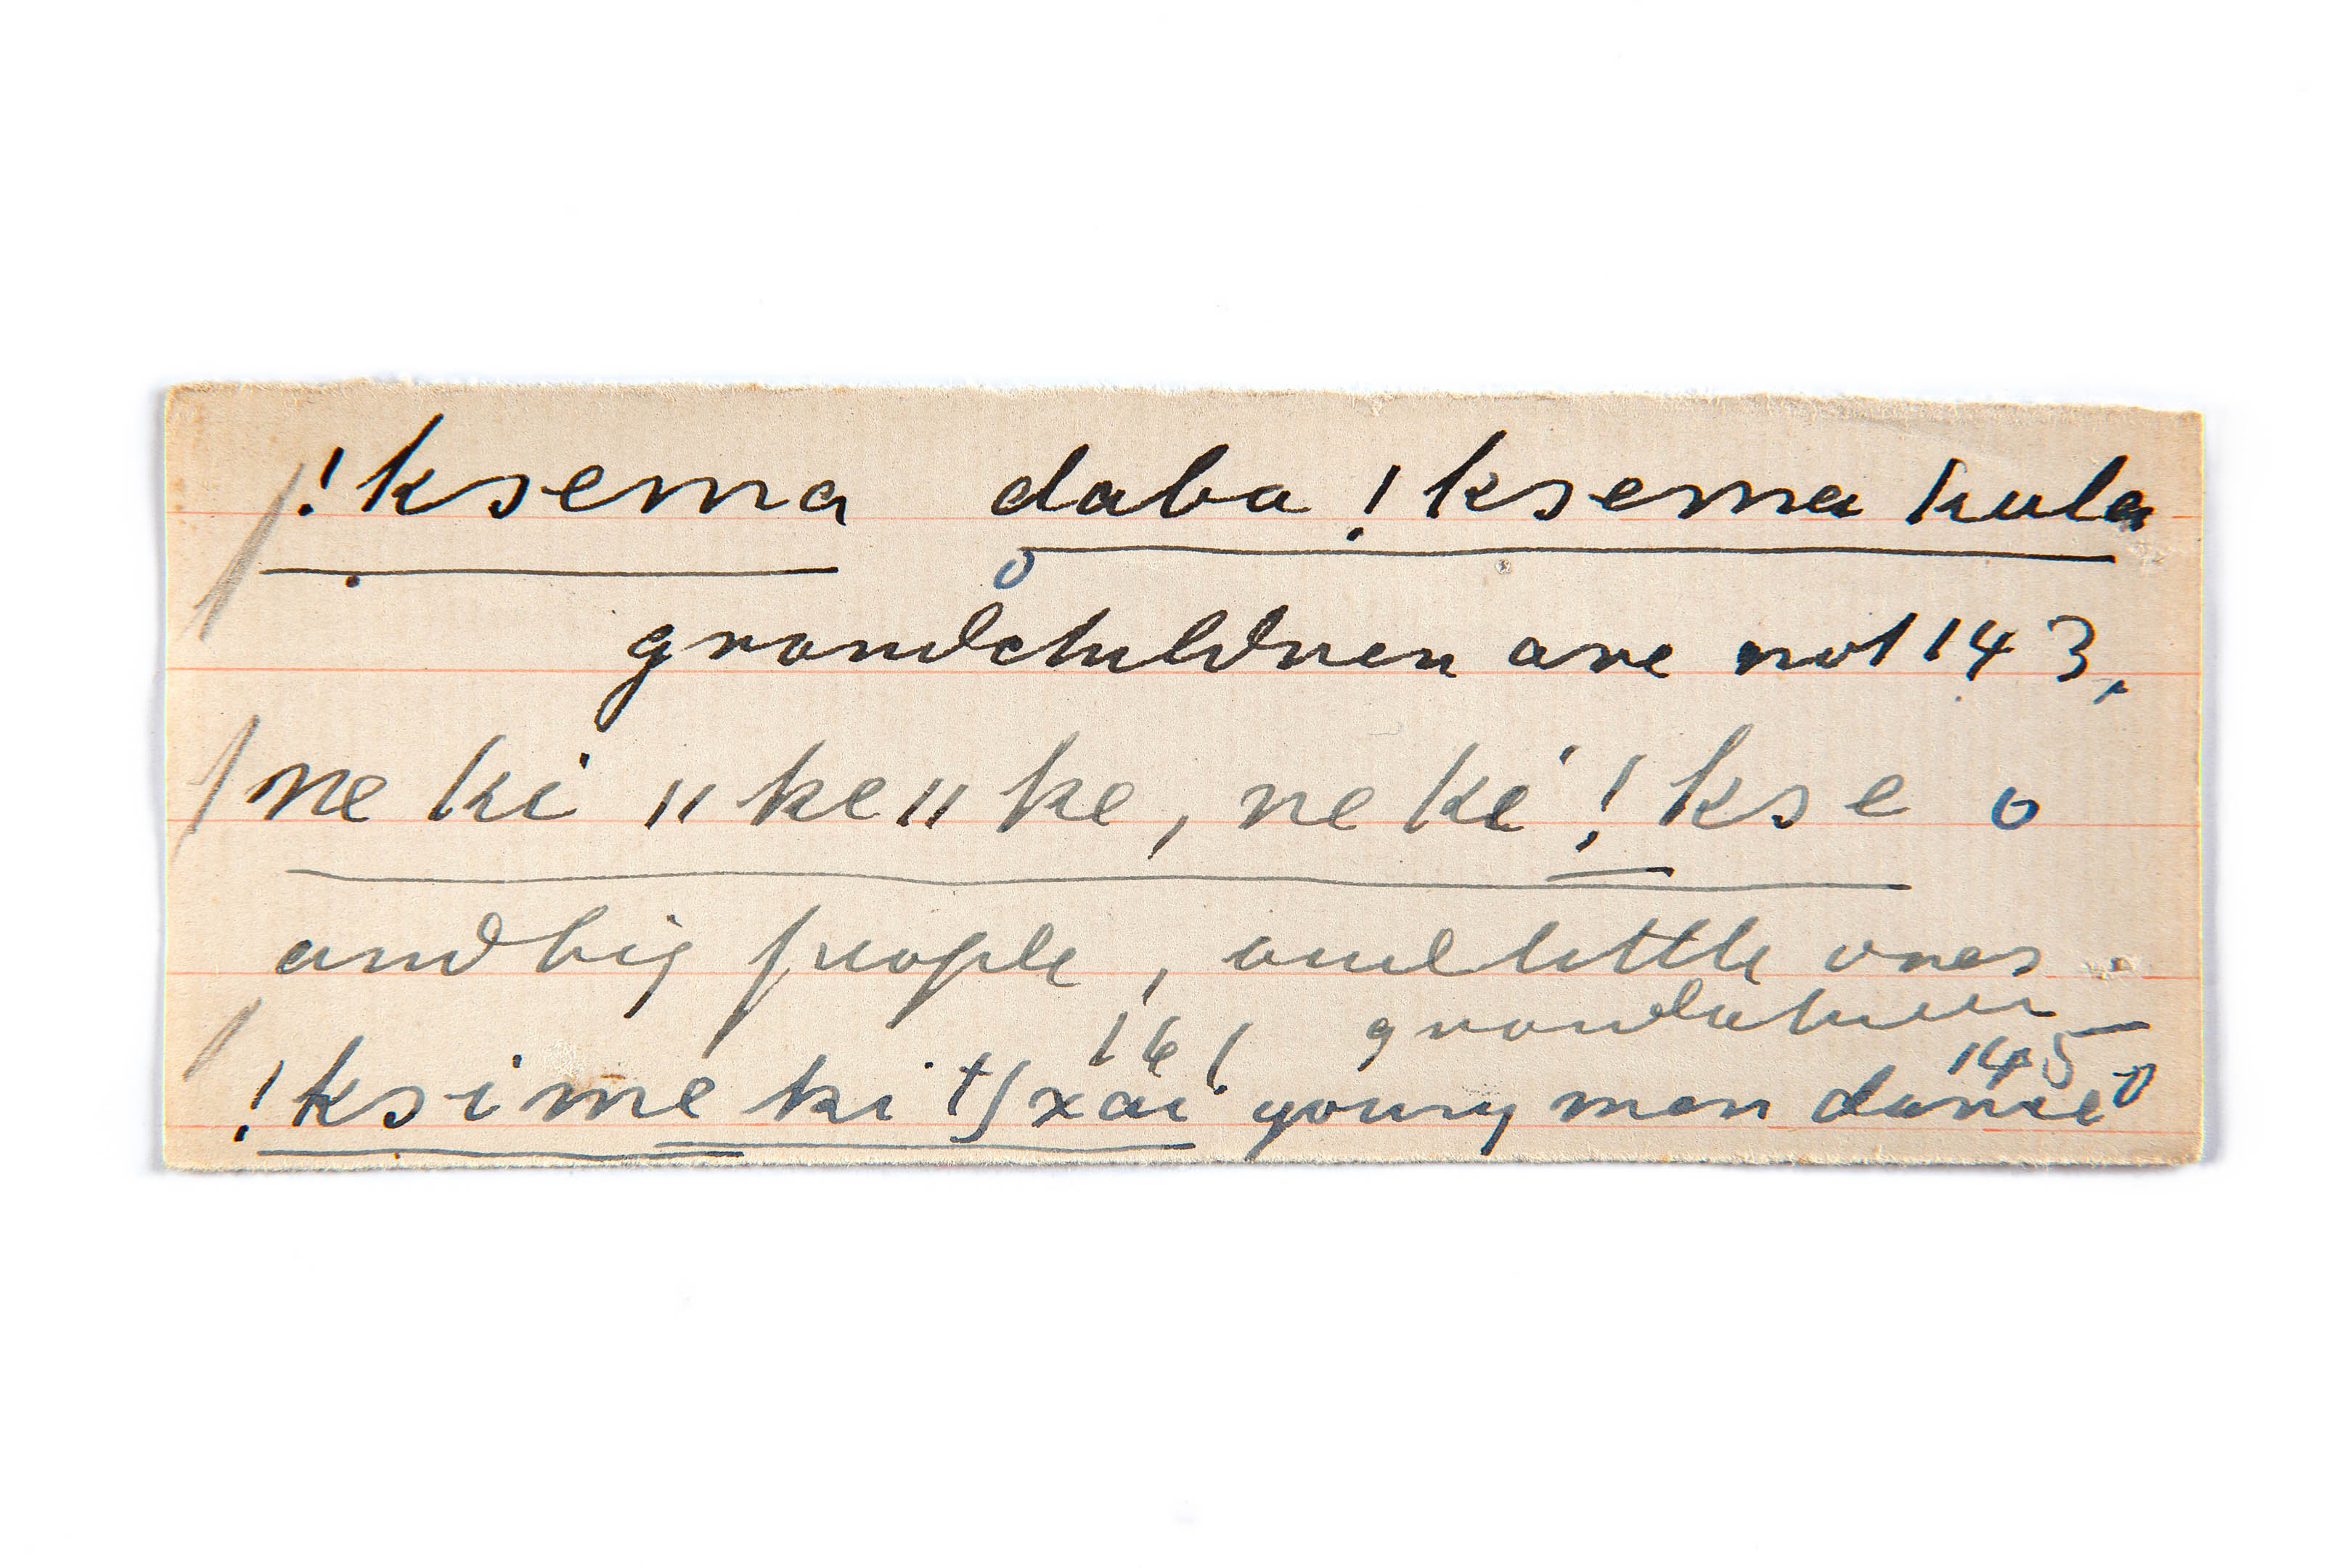 !ksema daba !ksema kula
o
grandchildren are not 143,
ne ki "ke"ke, ne ki !kse o
and big people, and little ones
161 grandchildren
145
!ksime ki tʃxai young men dance o